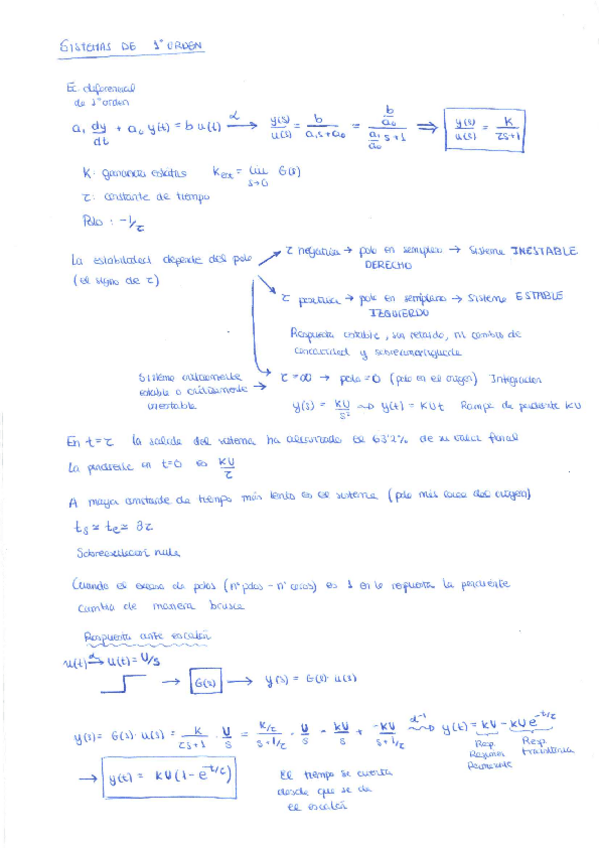 SISTEMAS DE 1º ORDEN
Ec. diferencial
de 1º orden
a₁ dy/dt + a₀ y(t) = b u(t) →ℒ y(s)/u(s) = b/(a₁s+a₀) = (b/a₀)/((a₁/a₀)s+1) ⇒ y(s)/u(s) = K/(τs+1)
K: ganancia estática K = lim s→0 G(s)
τ: constante de tiempo
Polo: -1/τ
τ negativa → polo en semiplano → Sistema INESTABLE
DERECHO
La estabilidad depende del polo
(el signo de τ)
τ positiva → polo en semiplano → Sistema ESTABLE
IZQUIERDO
Respuesta estable, sin retardo, ni cambio de
concavidad y sobreamortiguada
Sistema críticamente
estable o críticamente
inestable
τ = ∞ → polo = 0 (polo en el origen) Integrador
y(s) = KU/s² ⇝ y(t) = KUt Rampa de pendiente KU
En t = τ la salida del sistema ha alcanzado el 63'2% de su valor final
La pendiente en t=0 es KU/τ
A mayor constante de tiempo más lento es el sistema (polo más cerca del origen)
ts ≈ te ≈ 3τ
Sobreoscilación nula
Cuando el exceso de polos (nº polos - nº ceros) es 1 en la respuesta la pendiente
cambia de manera brusca
Respuesta ante escalón
u(t) →ℒ u(t) = U/s
→ G(s) → y(s) = G(s)·u(s)
y(s) = G(s)·u(s) = K/(τs+1) · U/s = (K/τ)/(s+1/τ) · U/s = KU/s + -KU/(s+1/τ) ⇝ℒ⁻¹ y(t) = KU - KUe^(-t/τ)
Resp. Resp.
Régimen transitoria
Permanente
→ y(t) = KU(1 - e^(-t/τ))
El tiempo se cuenta
desde que se da
el escalón